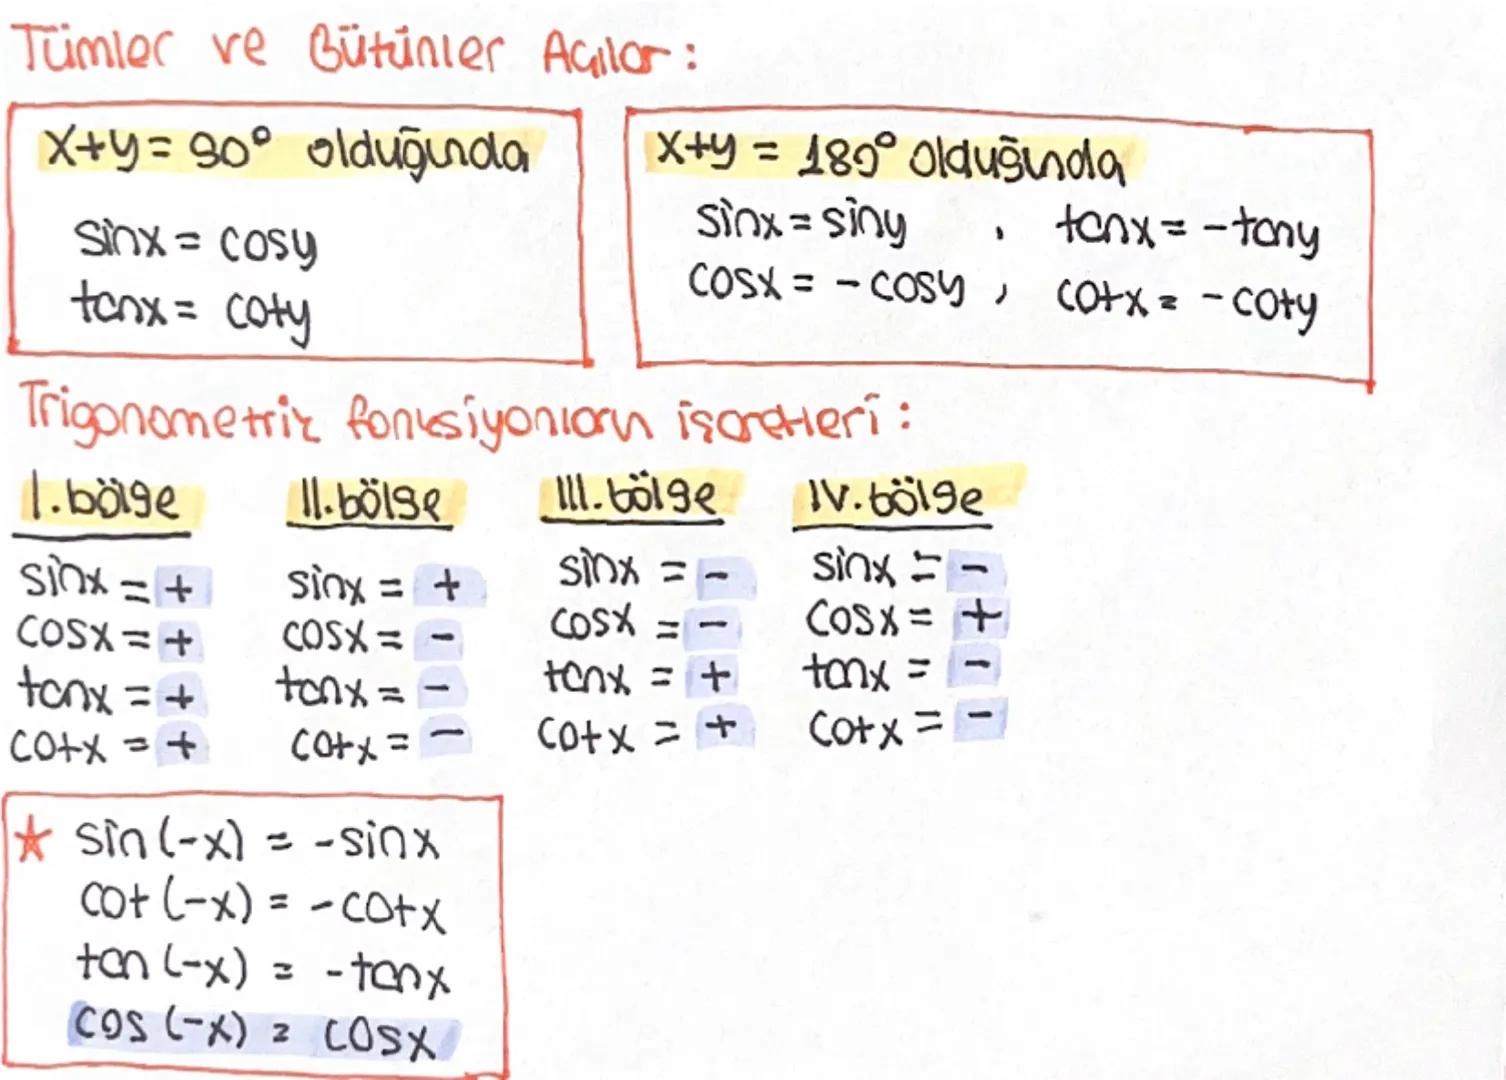 Tümler ve Bütünler Açılar:
x+y = 90° olduğunda
sinx = cosy
tanx = coty
x+y = 180° olduğunda
sinx = siny , tanx = -tany
cosx = -cosy , cotx = -coty
Trigonometrik fonksiyonların işaretleri:
I.bölge II.bölge III.bölge IV.bölge
sinx = + sinx = + sinx = - sinx = -
cosx = + cosx = - cosx = - cosx = +
tanx = + tanx = - tanx = + tanx = -
cotx = + cotx = - cotx = + cotx = -
★ sin(-x) = -sinx
cot(-x) = -cotx
tan(-x) = -tanx
cos(-x) = cosx